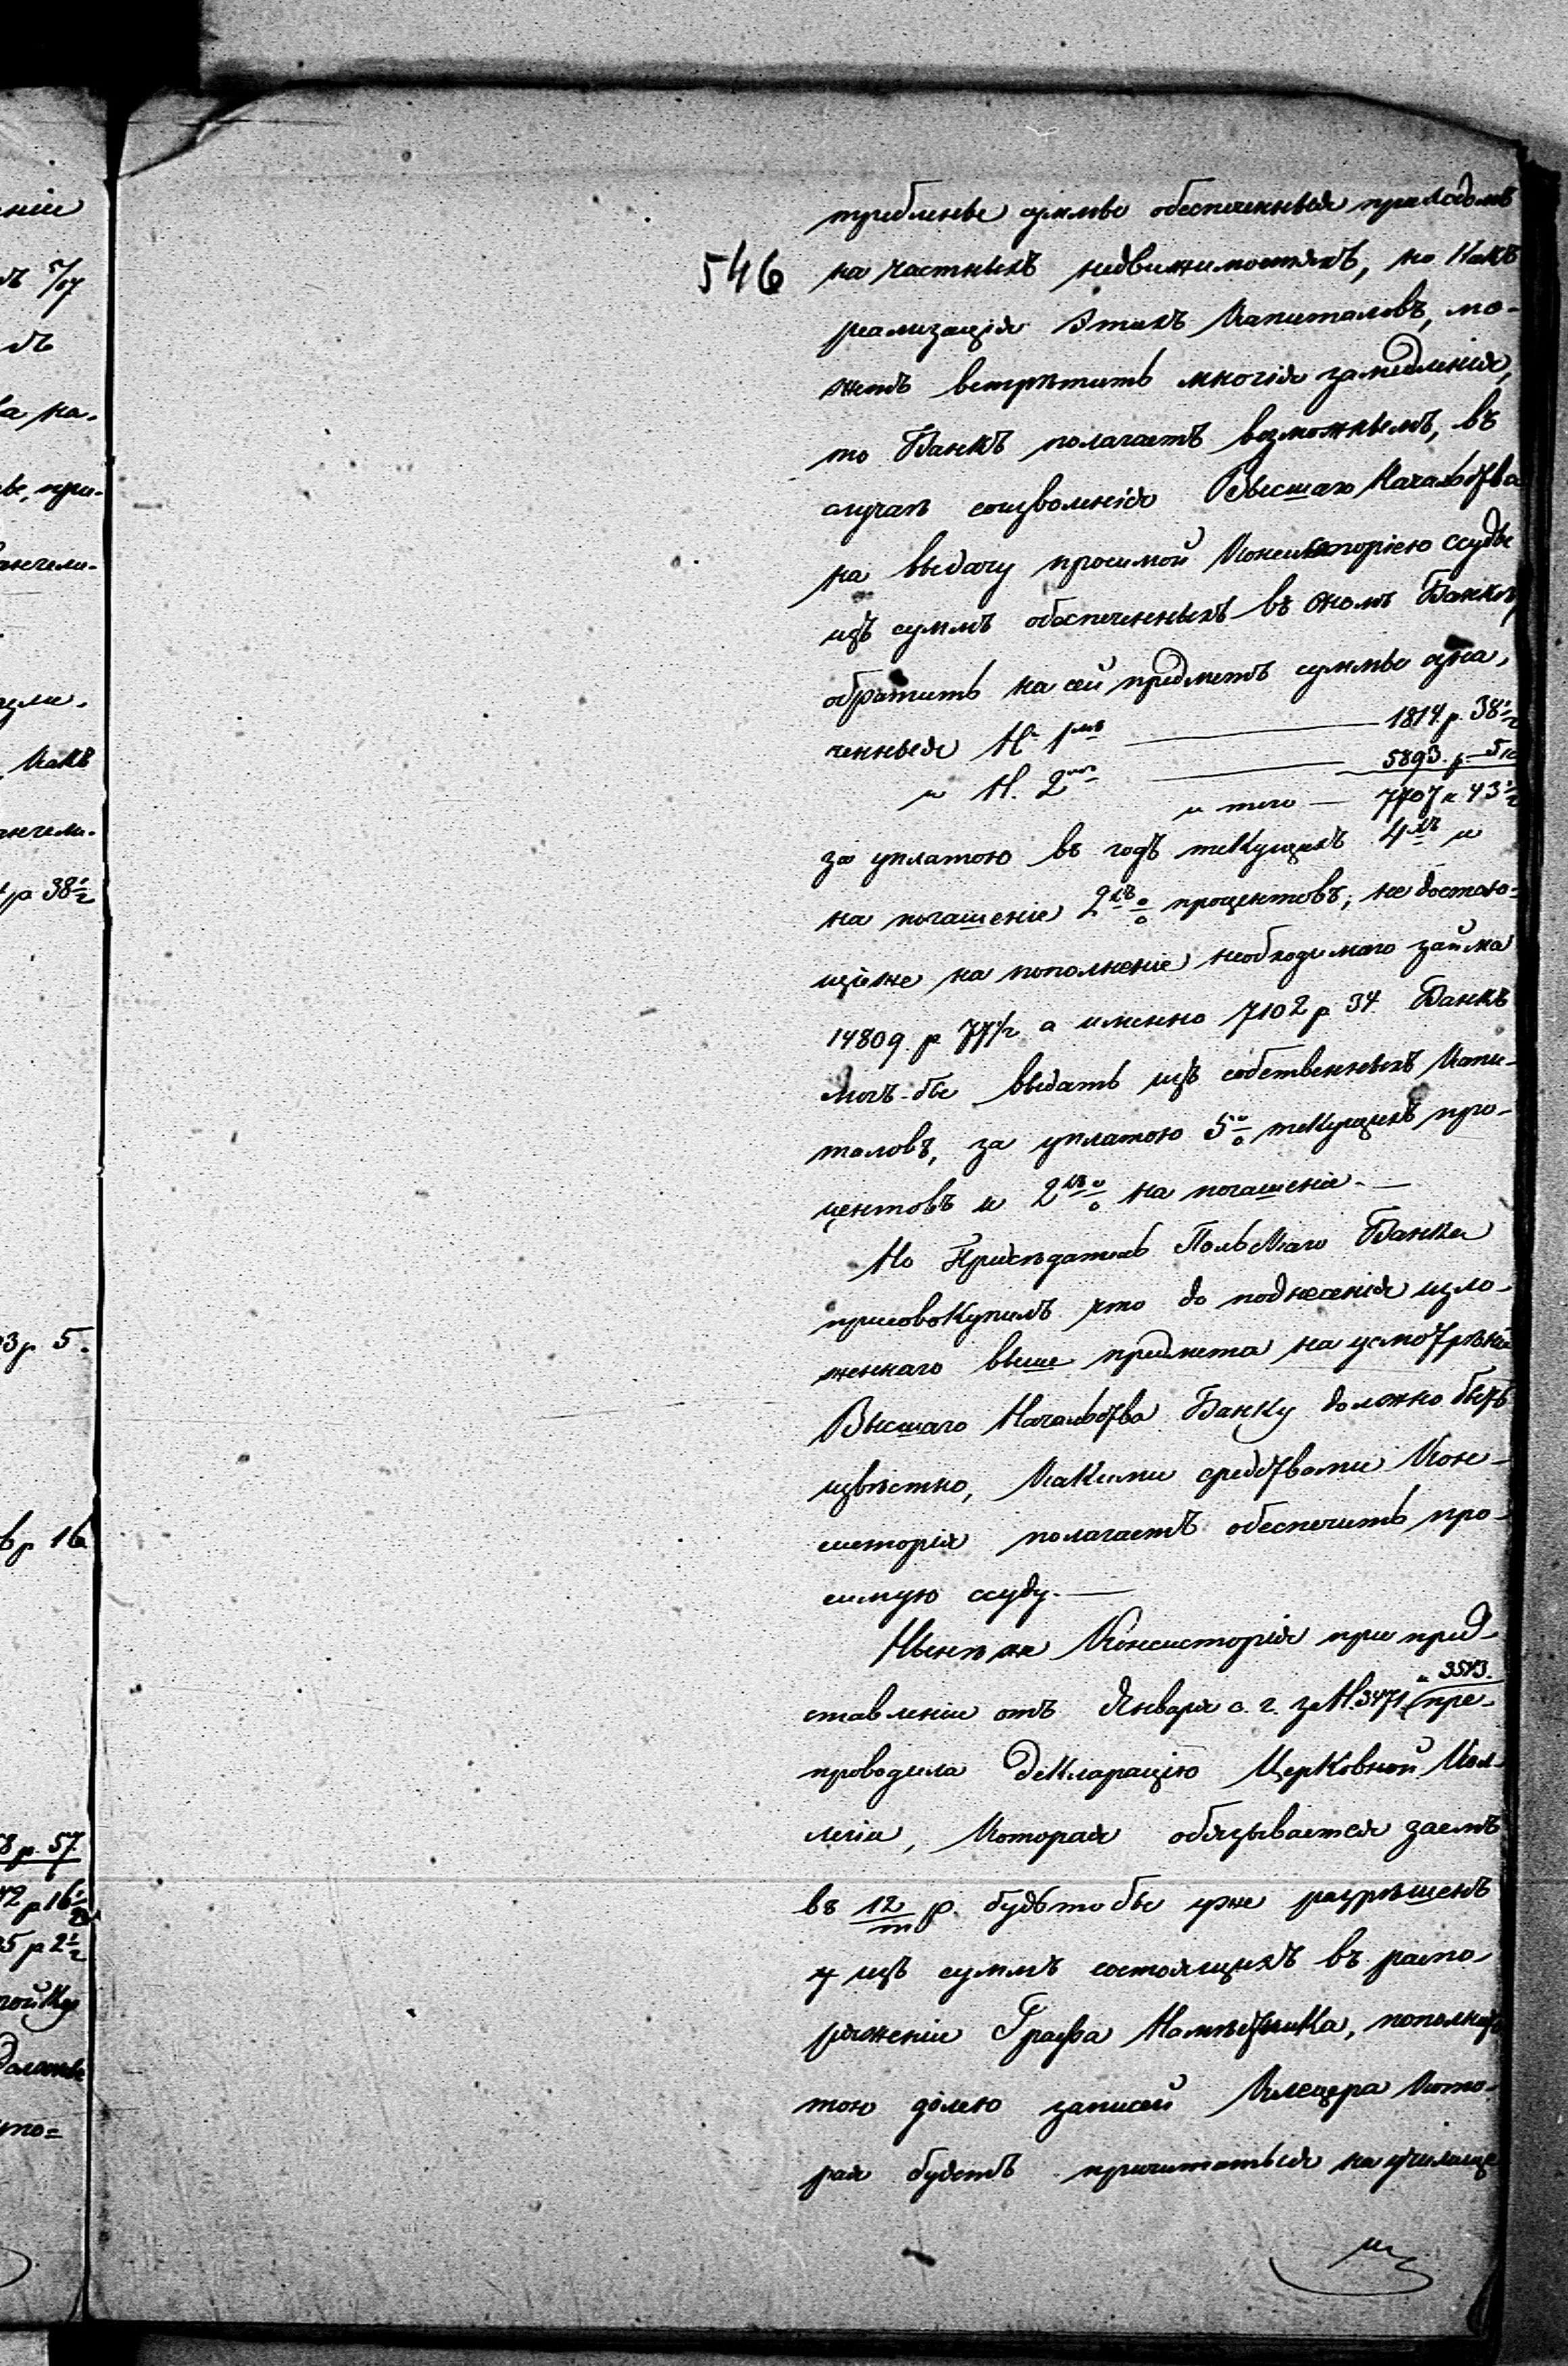 ніи
а на-
Какъ
р 38½
93 р 5.
р 16
8 р. 57.
42 р 16½
5 р 2½
546
требленье суммы обеспеченныя приходомъ
на частныхъ недвижимостяхъ, но какъ
реализація этихъ капиталовъ, мо-
жетъ встрѣтить многія замедленія,
то Банкъ полагаетъ возможнымъ, въ
случаѣ соизволенія Высшаго Начальства
на выдачу просимой Консисторіею ссуды
изъ суммъ обеспеченныхъ въ ономъ Банкѣ,
обратить на сей предметъ суммы озна-
ченныя Н. 1мъ — 1814 р. 38½
и Н. 2мъ — 5893. р. 5 к
и того — 7707 р 43½
за уплатою въ годъ текущихъ 4хъ и
на погашеніе 2хъ % процентовъ; не достаю-
щіе же на пополненіе необходимаго займа
14809 р 77½ а именно 7102 р 34 Банкъ
могъ-бы выдать изъ собственныхъ Капи-
таловъ, за уплатою 5% текущихъ про-
центовъ и 2хъ % на погашеніе. —
Но Предсѣдатель Польскаго Банка
присовокупилъ что до поднесенія изло-
женнаго выше предмета на усмотрѣніе
Высшаго Начальства Банку должно быть
извѣстно, какими средствами Кон-
систорія полагаетъ обеспечить про-
симую ссуду. —
Нынѣ же Консисторія при пред-
ставленіи отъ Января с. г. за Н. 3471 и 3543. пре-
проводила декларацію Церковной Кол-
легіи, которая обязывается заемъ
въ 12/m р. будьто бы уже разрѣшенъ
изъ суммъ состоящихъ въ распо-
ряженіи Графа Намѣстника, пополнить
тою долею записей Клецера кото-
рая будетъ причитаться на училище